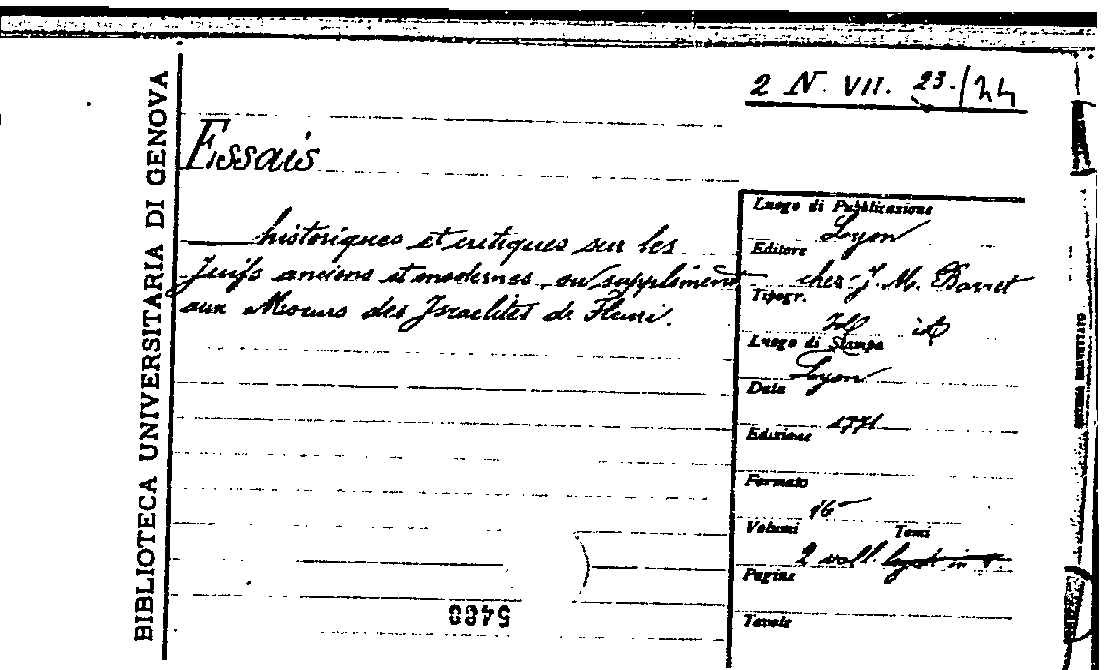 BIBLIOTECA UNIVERSITARIA DI GENOVA
2 N. VII. 23./24
Essais
historiques et critiques sur les
Juifs anciens et modernes, ou supplément
aux Moeurs des Israélites de Fleuri.
Luogo di Pubblicazione
Lyon
Editore
chez J. M. Barret
Tipogr.
id
Luogo di Stampa
Lyon
Data
1771
Edizione
Formato
16°
Volumi Tomi
2 voll.
Pagine
Tavole
5480